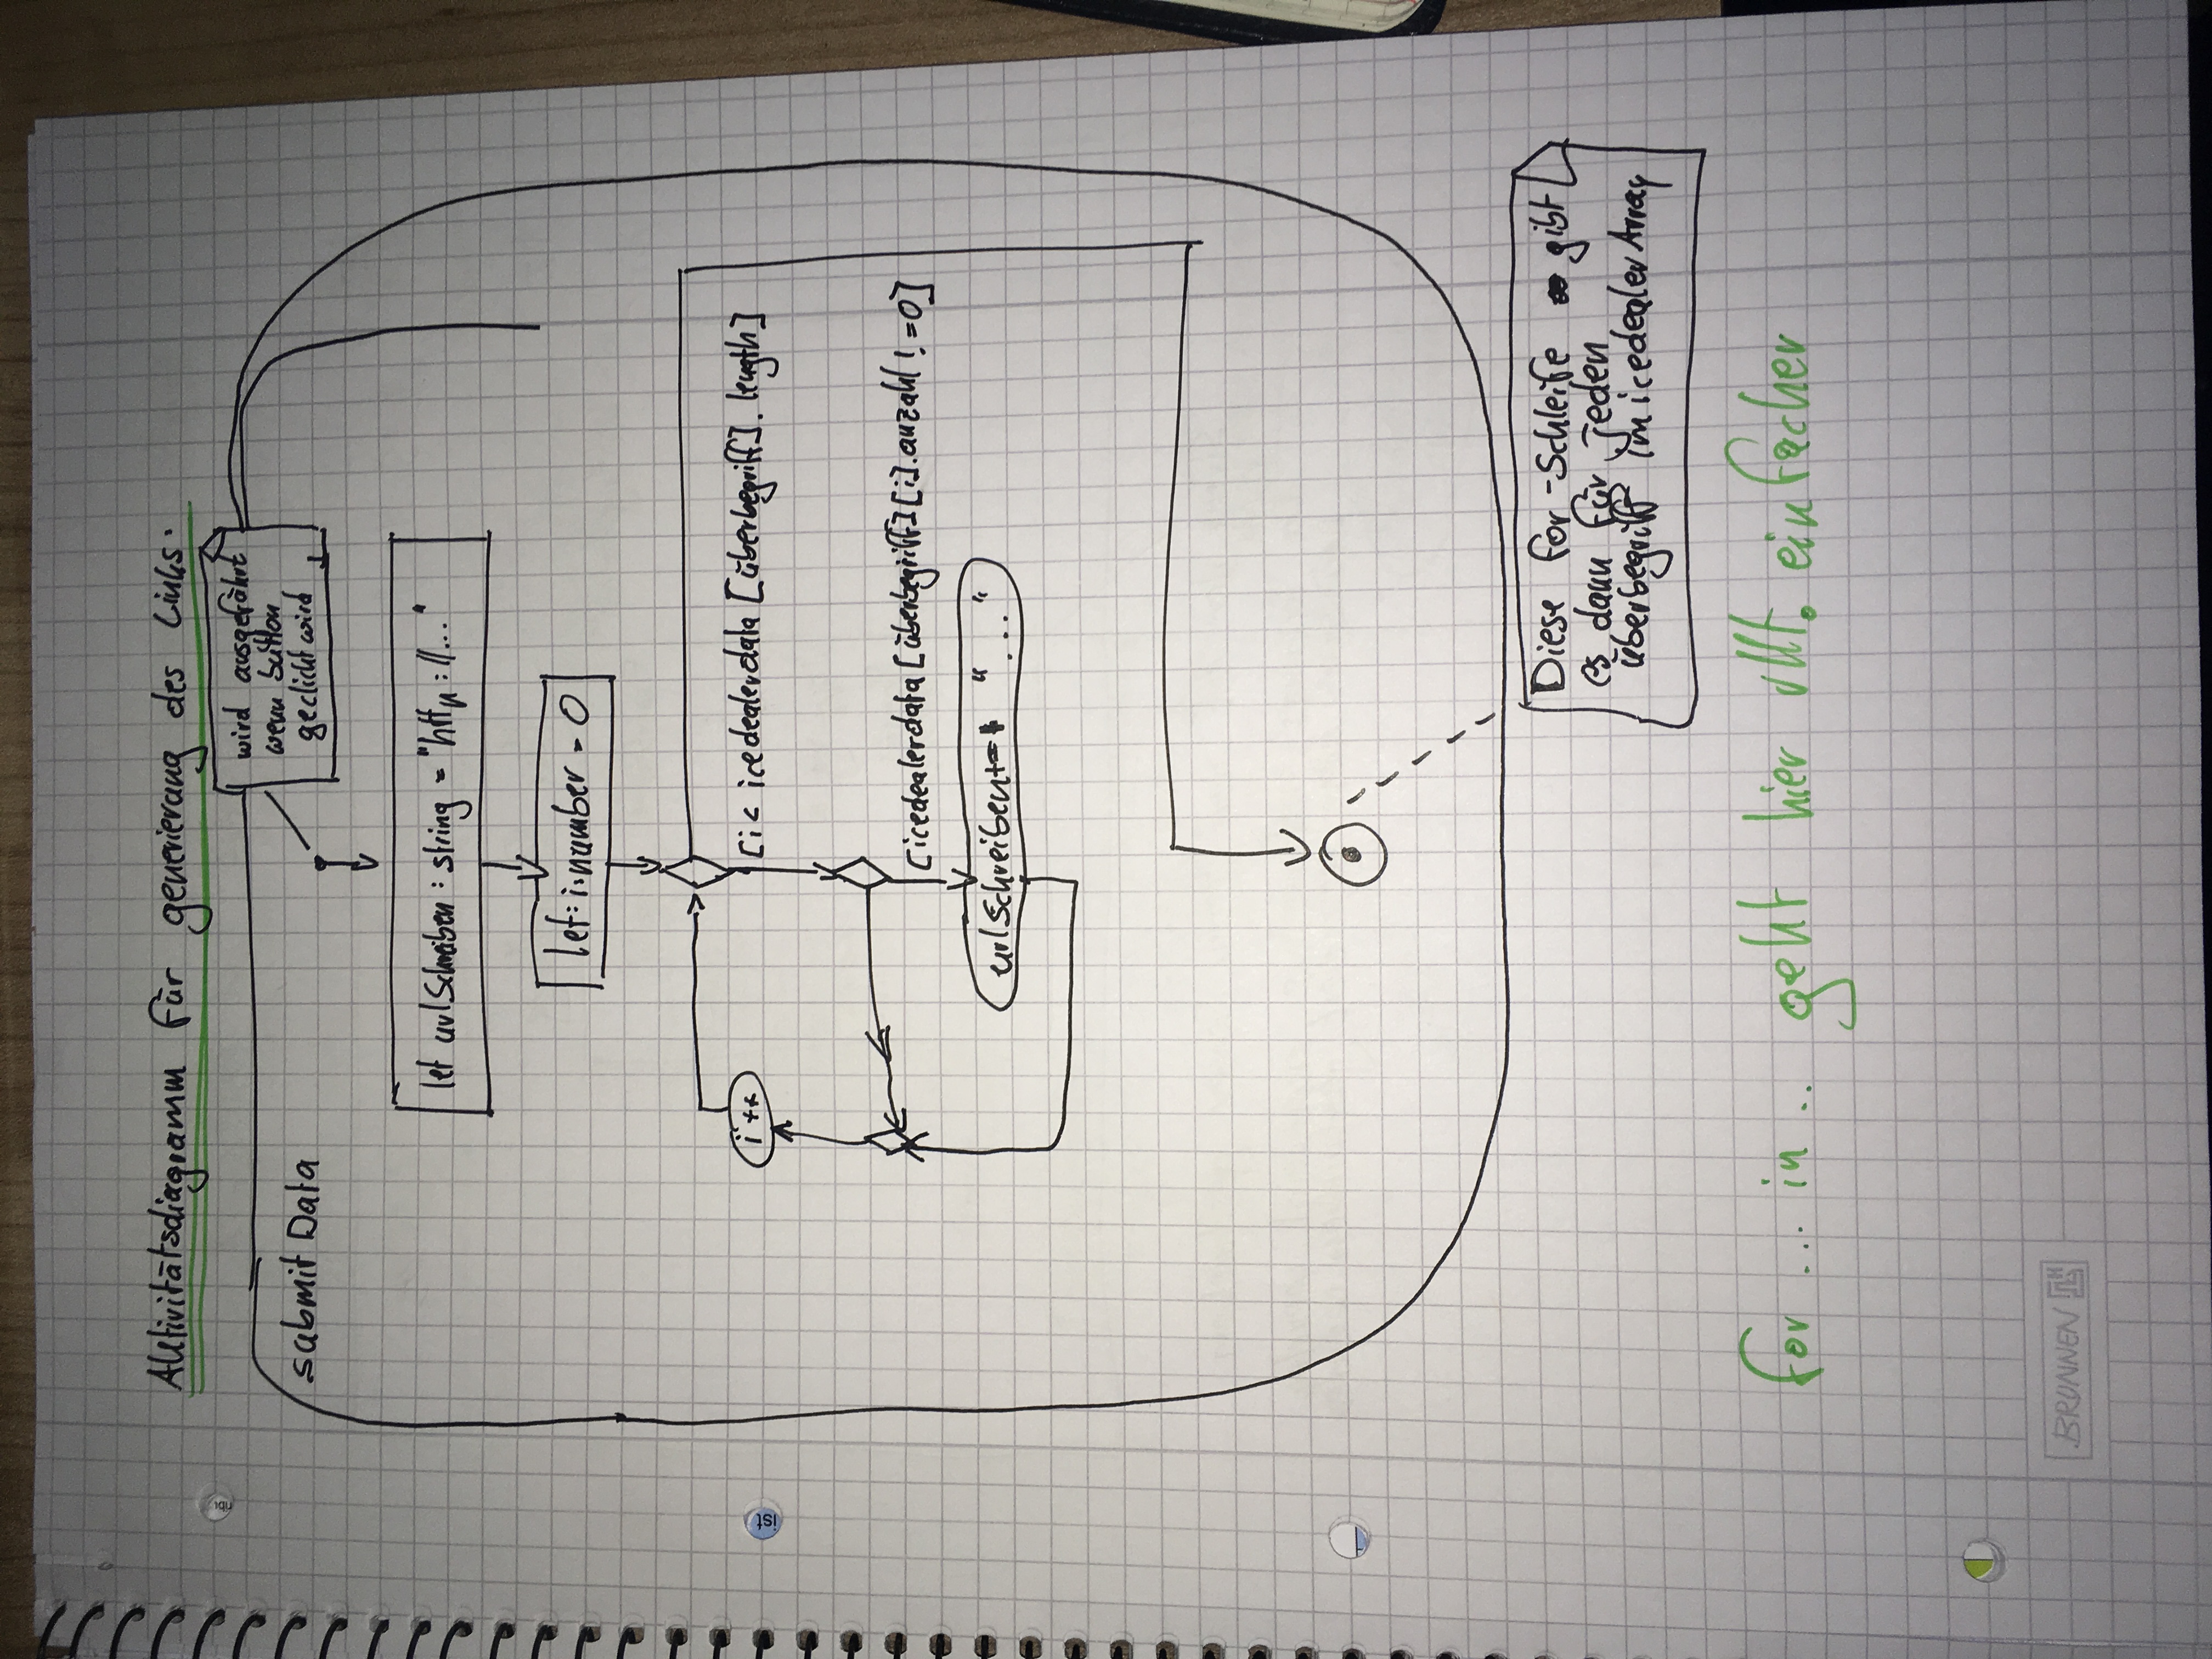 Aktivitätsdiagramm für generierung des Links.
wird ausgeführt
wenn button
geclickt wird
submit Data
let urlSchreiben : string = "http://..."
let: i:number = 0
i++
[i < icedealerdata [überbegriff]. length]
[icedealerdata [überbegriff] [i].anzahl != 0]
urlSchreiben += "..."
Diese for-Schleife gibt
es dann für jeden
überbegriff im icedealer Array
for ... in .. geht hier vllt. einfacher
ist
BRUNNEN